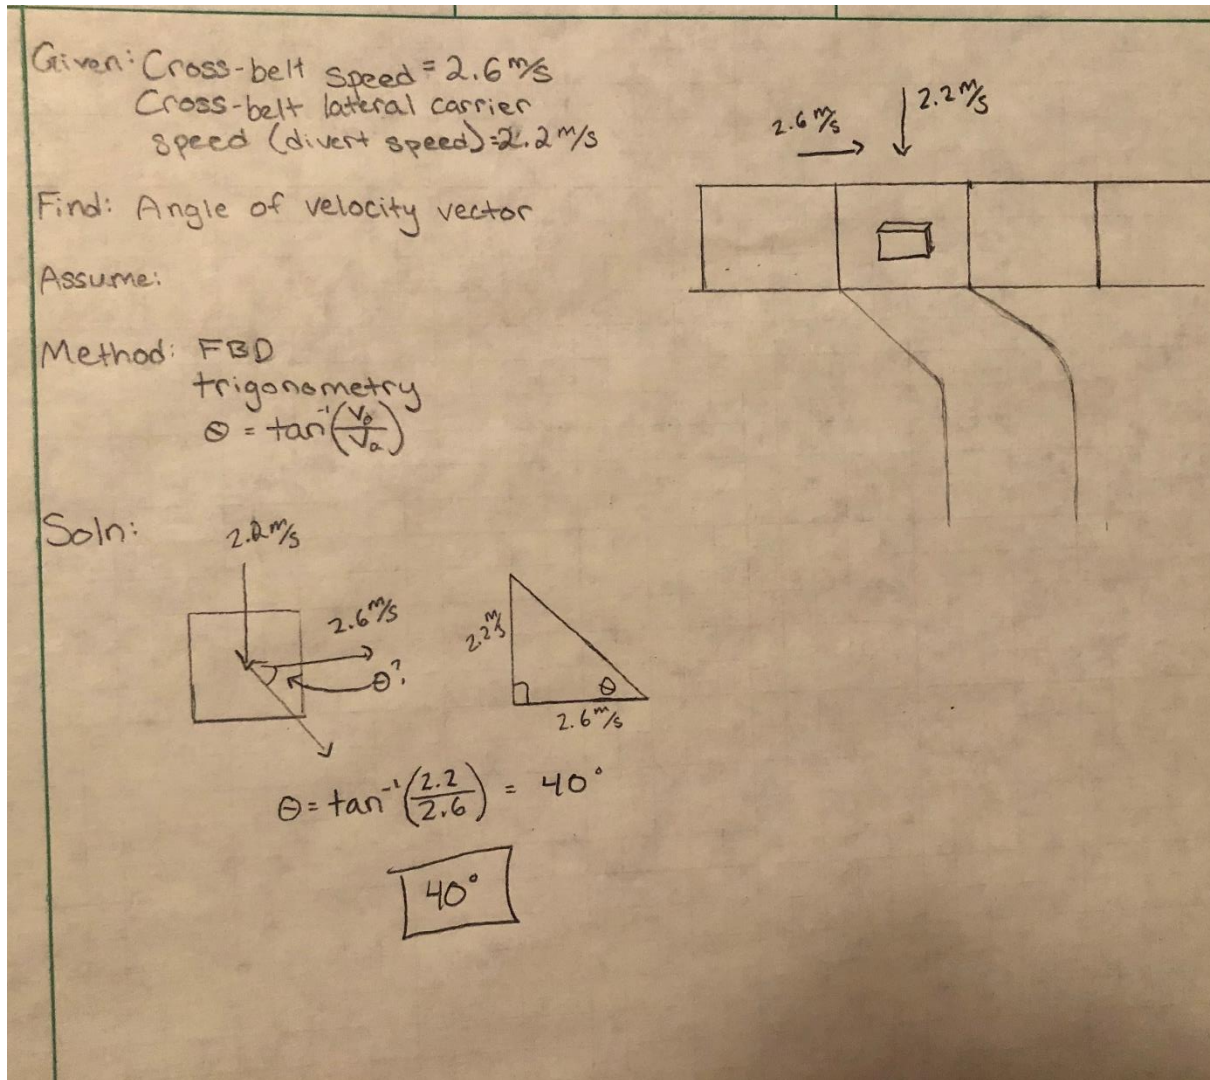 Given: Cross-belt speed = 2.6 m/s
Cross-belt lateral carrier
speed (divert speed)=2.2 m/s
2.6 m/s
2.2 m/s
Find: Angle of velocity vector
Assume:
Method: FBD
trigonometry
Θ = tan⁻¹(V_b/V_a)
Soln:
2.2 m/s
2.6 m/s
Θ?
2.2 m/s
Θ
2.6 m/s
Θ = tan⁻¹(2.2/2.6) = 40°
40°